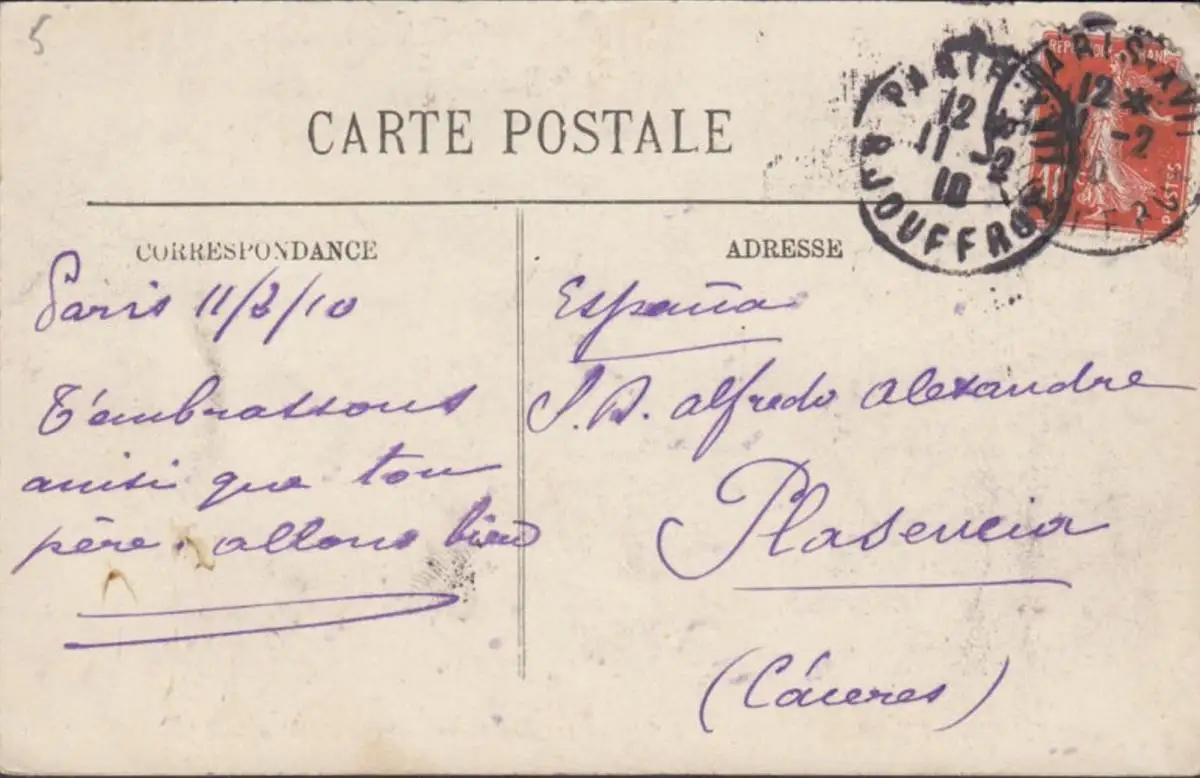 5
CARTE POSTALE
PARIS
12
11 -2
10
8 R JOUFFROY
PARIS XVII
12 *
-2
10
REPUBLIQUE FRANC
10
POSTES
CORRESPONDANCE
ADRESSE
Paris 11/2/10
T'embrassons
ainsi que ton
père. allons bien
España
S. D. Alfredo Alexandre
Plasencia
(Cáceres)